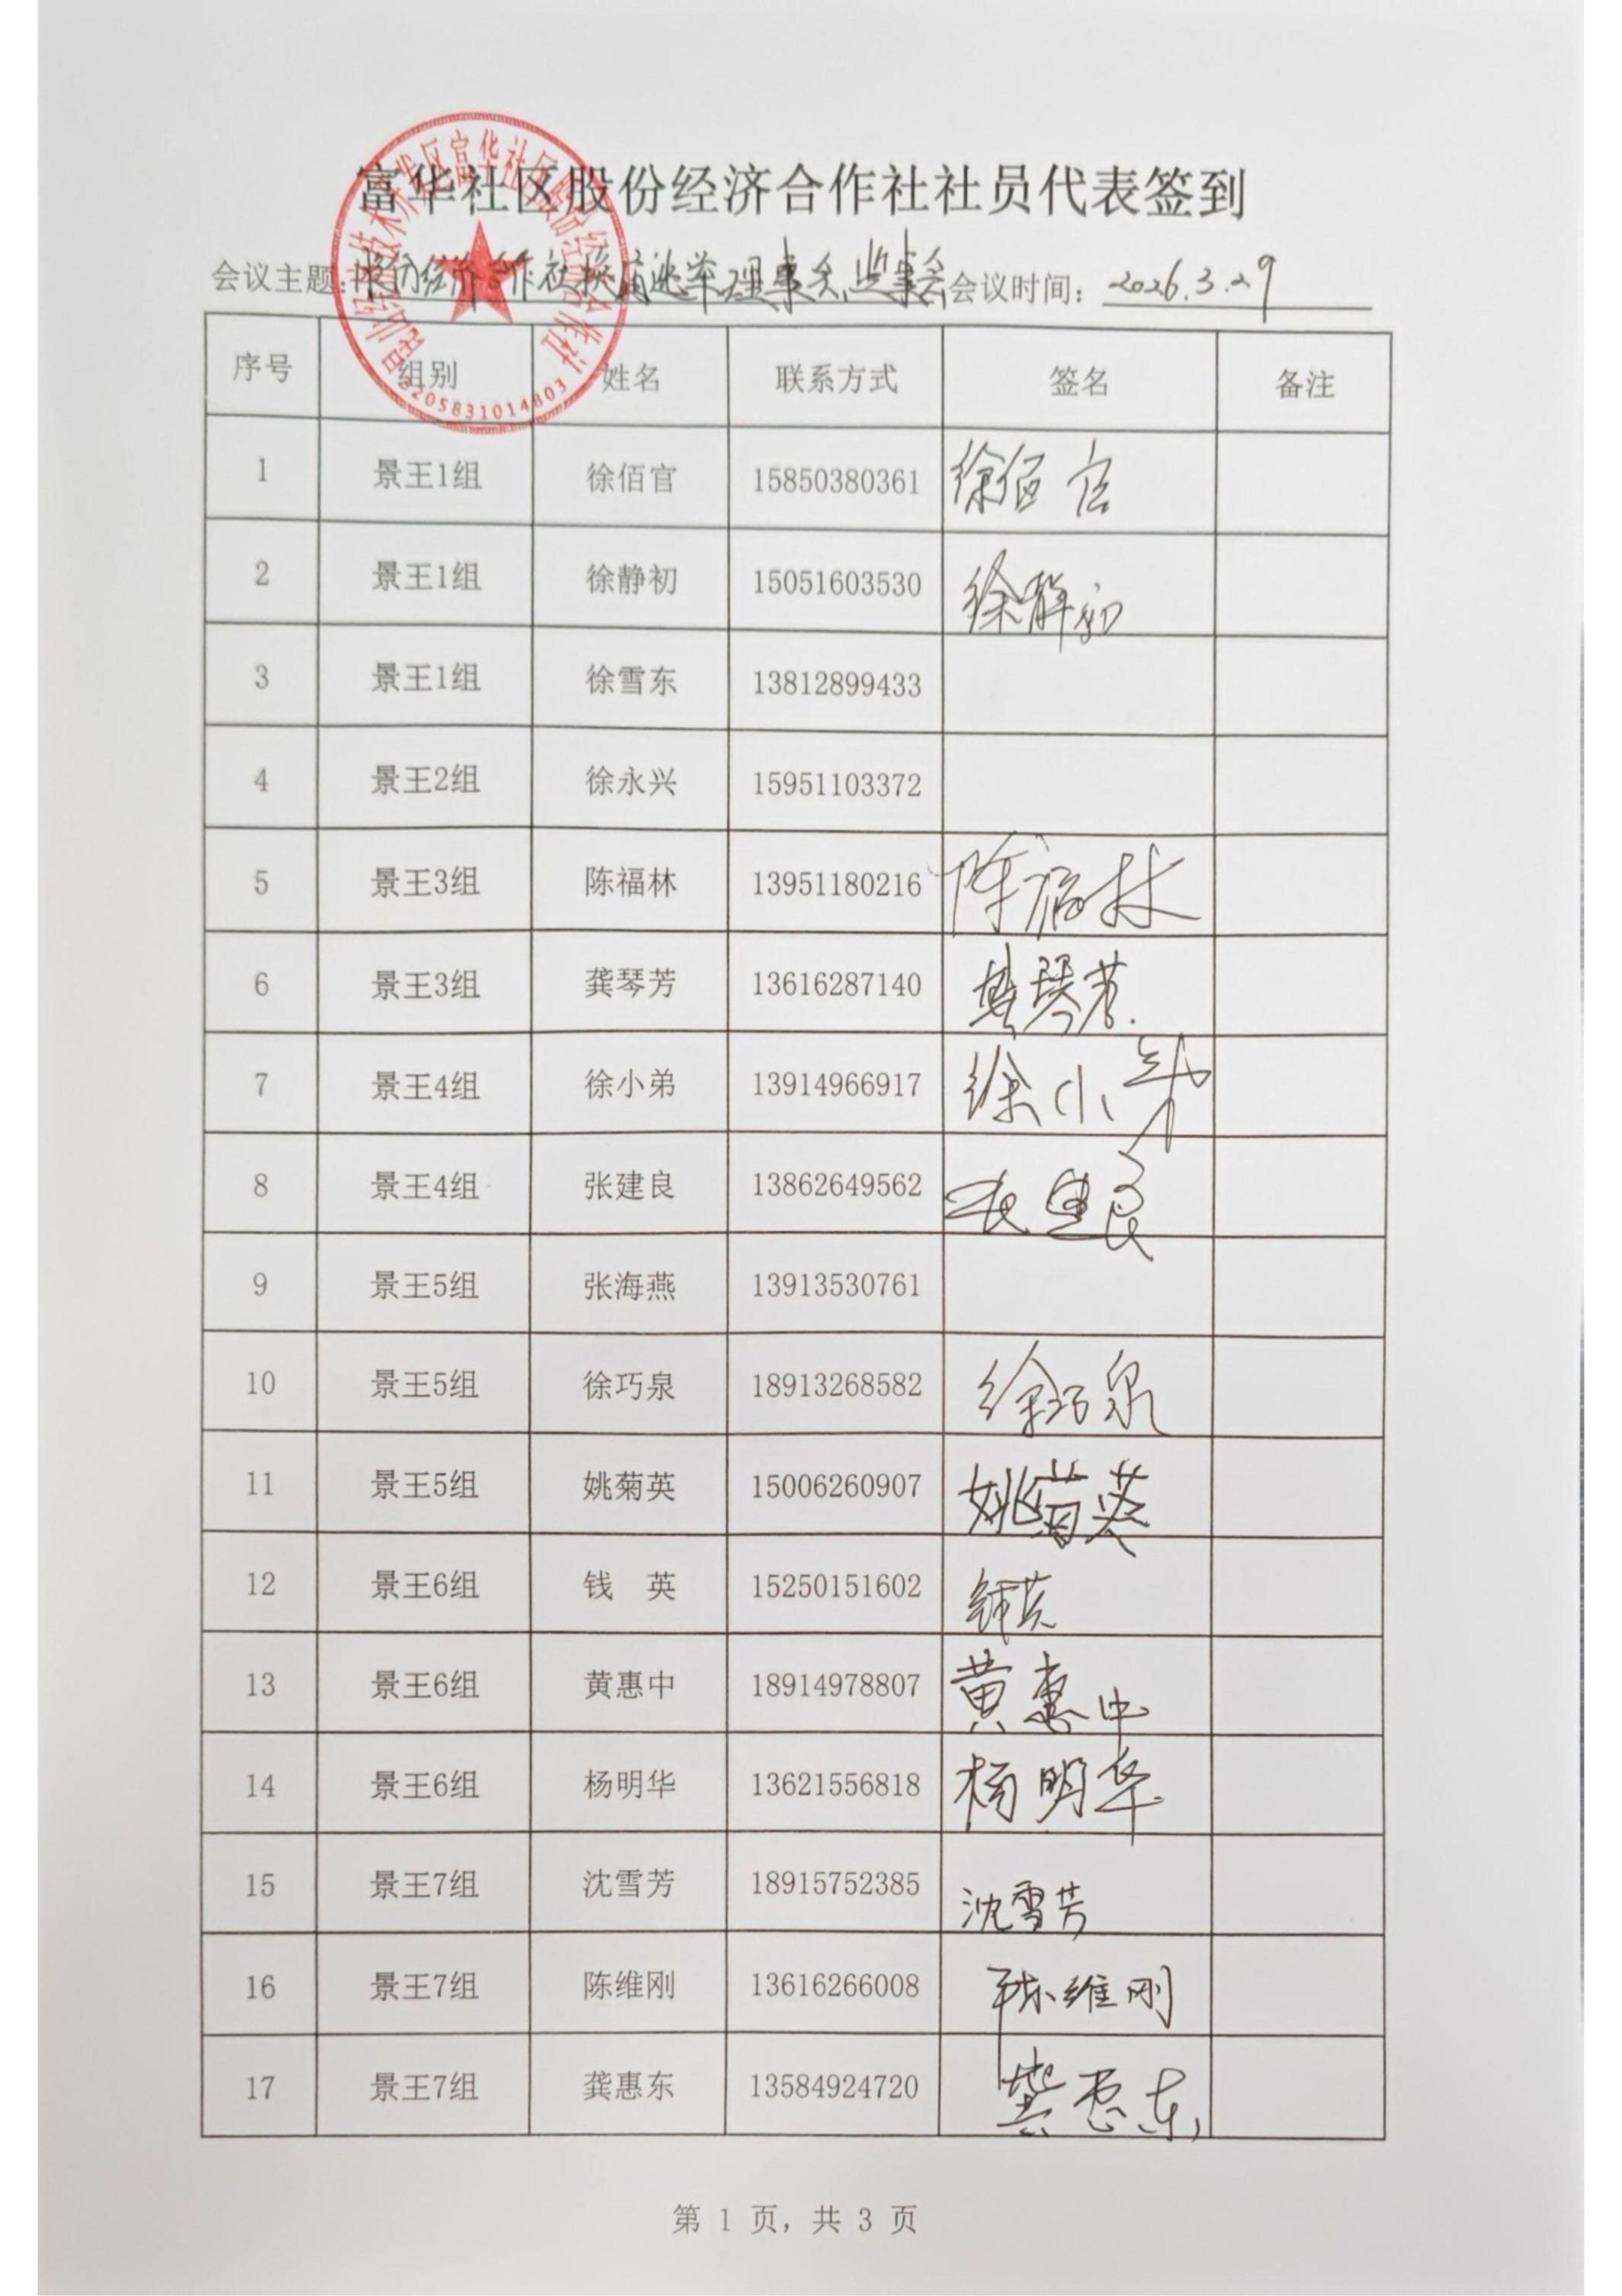 富华社区股份经济合作社社员代表签到
会议主题:股份经济合作社换届选举理事会、监事会 会议时间: 2026.3.29
序号 组别 姓名 联系方式 签名 备注
3205831014803
1 景王1组 徐佰官 15850380361 徐佰官
2 景王1组 徐静初 15051603530 徐静初
3 景王1组 徐雪东 13812899433
4 景王2组 徐永兴 15951103372
5 景王3组 陈福林 13951180216 陈福林
6 景王3组 龚琴芳 13616287140 龚琴芳.
7 景王4组 徐小弟 13914966917 徐小弟
8 景王4组 张建良 13862649562 张建良
9 景王5组 张海燕 13913530761
10 景王5组 徐巧泉 18913268582 徐巧泉
11 景王5组 姚菊英 15006260907 姚菊英
12 景王6组 钱 英 15250151602 钱英
13 景王6组 黄惠中 18914978807 黄惠中
14 景王6组 杨明华 13621556818 杨明华
15 景王7组 沈雪芳 18915752385 沈雪芳
16 景王7组 陈维刚 13616266008 陈维刚
17 景王7组 龚惠东 13584924720 龚惠东
第 1 页，共 3 页